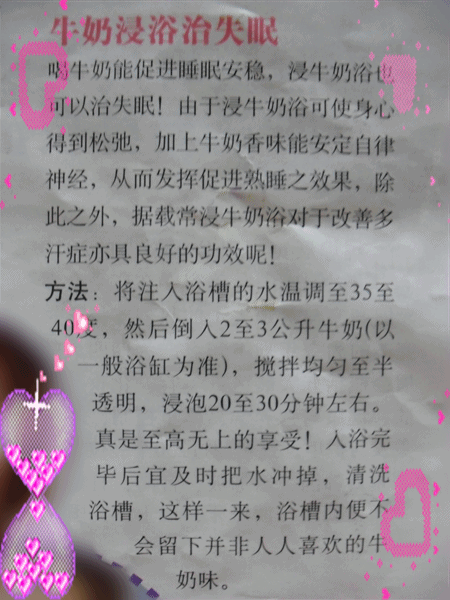 牛奶浸浴治失眠
喝牛奶能促进睡眠安稳，浸牛奶浴也
可以治失眠！由于浸牛奶浴可使身心
得到松弛，加上牛奶香味能安定自律
神经，从而发挥促进熟睡之效果，除
此之外，据载常浸牛奶浴对于改善多
汗症亦具良好的功效呢！
方法：将注入浴槽的水温调至35至
40度，然后倒入2至3公升牛奶(以
一般浴缸为准)，搅拌均匀至半
透明，浸泡20至30分钟左右。
真是至高无上的享受！入浴完
毕后宜及时把水冲掉，清洗
浴槽，这样一来，浴槽内便不
会留下并非人人喜欢的牛
奶味。